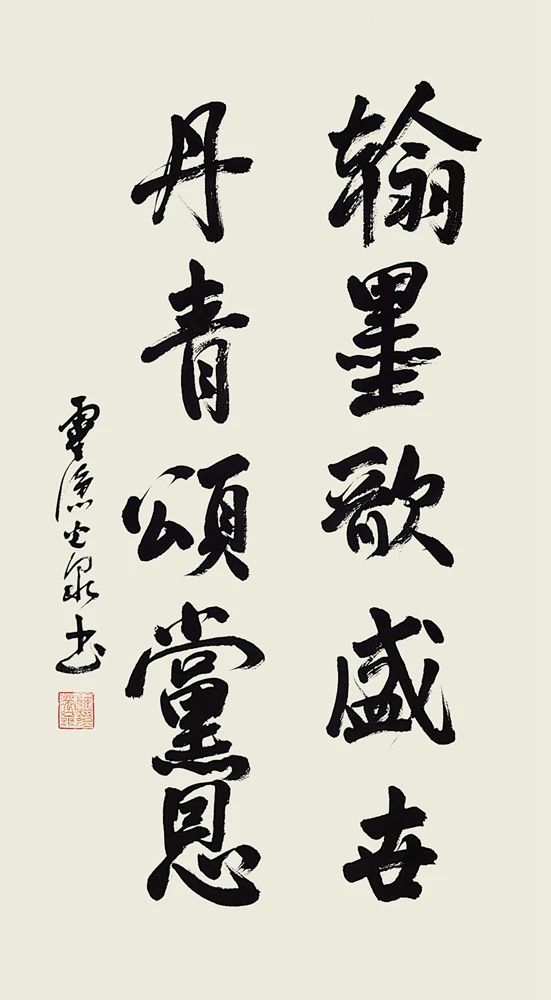 翰墨歌盛世
丹青頌黨恩